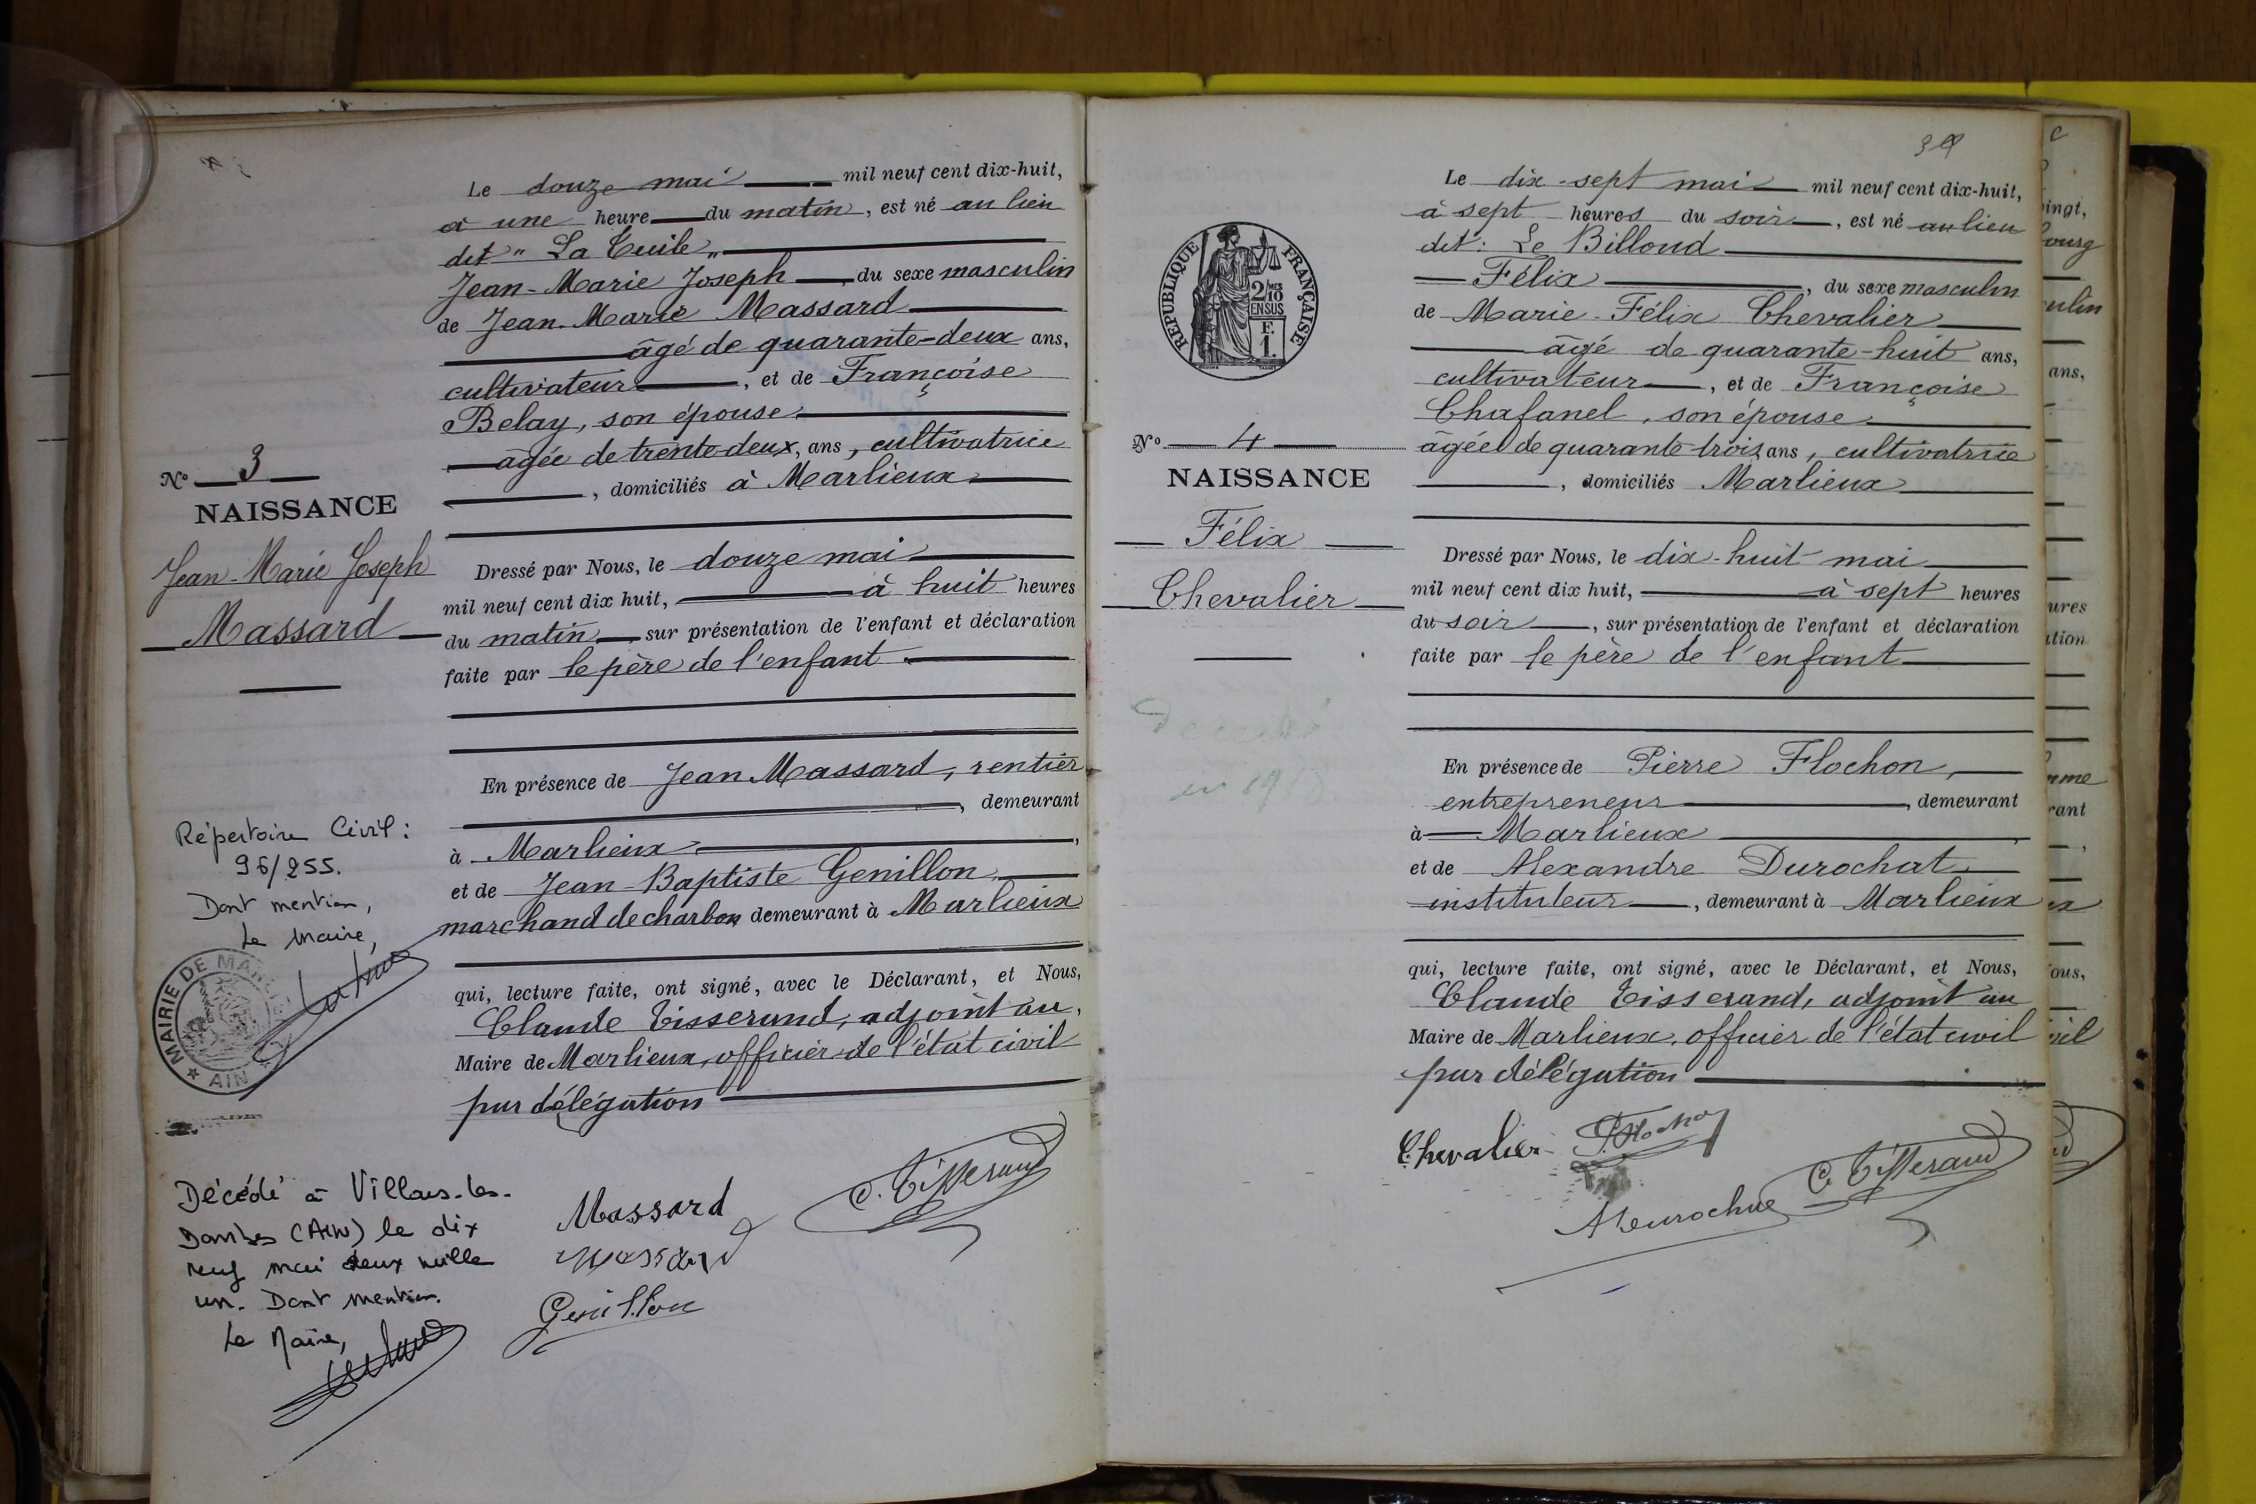 Le douze mai mil neuf cent dix-huit,
à une heure du matin, est né au lieu
dit " La Tuile "
Jean-Marie Joseph, du sexe masculin
de Jean-Marie Massard
âgé de quarante-deux ans,
cultivateur, et de Françoise
Belay, son épouse
âgée de trente-deux, ans, cultivatrice
, domiciliés à Marlieux
No 3
NAISSANCE
Jean-Marie Joseph
Massard
Dressé par Nous, le douze mai
mil neuf cent dix huit, à huit heures
du matin, sur présentation de l'enfant et déclaration
faite par le père de l'enfant
En présence de Jean Massard, rentier
, demeurant
à Marlieux,
et de Jean-Baptiste Genillon
marchand de charbon demeurant à Marlieux
qui, lecture faite, ont signé, avec le Déclarant, et Nous,
Claude Tisserand, adjoint au,
Maire de Marlieux, officier de l'état civil
par délégation
Répertoire Civil :
96/255.
Dont mention,
Le Maire,
MAIRIE DE
AIN
Décédé à Villars-les-
Dombes (AIN) le dix
neuf mai deux mille
un. Dont mention.
Le Maire,
Massard
Massard
Genillon
C. Tisserand
Le dix-sept mai mil neuf cent dix-huit,
à sept heures du soir, est né au lieu
dit : Le Billoud
Félix, du sexe masculin
de Marie-Félix Chevalier
âgé de quarante-huit ans,
cultivateur, et de Françoise
Chafanel, son épouse
âgée de quarante-trois ans, cultivatrice
, domiciliés Marlieux
REPUBLIQUE FRANÇAISE
2/10 EN SUS
F.
1.
No 4
NAISSANCE
Félix
Chevalier
Dressé par Nous, le dix-huit mai
mil neuf cent dix huit, à sept heures
du soir, sur présentation de l'enfant et déclaration
faite par le père de l'enfant
En présence de Pierre Flochon,
entrepreneur, demeurant
à Marlieux,
et de Alexandre Durochat
instituteur, demeurant à Marlieux
qui, lecture faite, ont signé, avec le Déclarant, et Nous,
Claude Tisserand, adjoint au
Maire de Marlieux, officier de l'état civil
par délégation
Chevalier
C. Tisserand